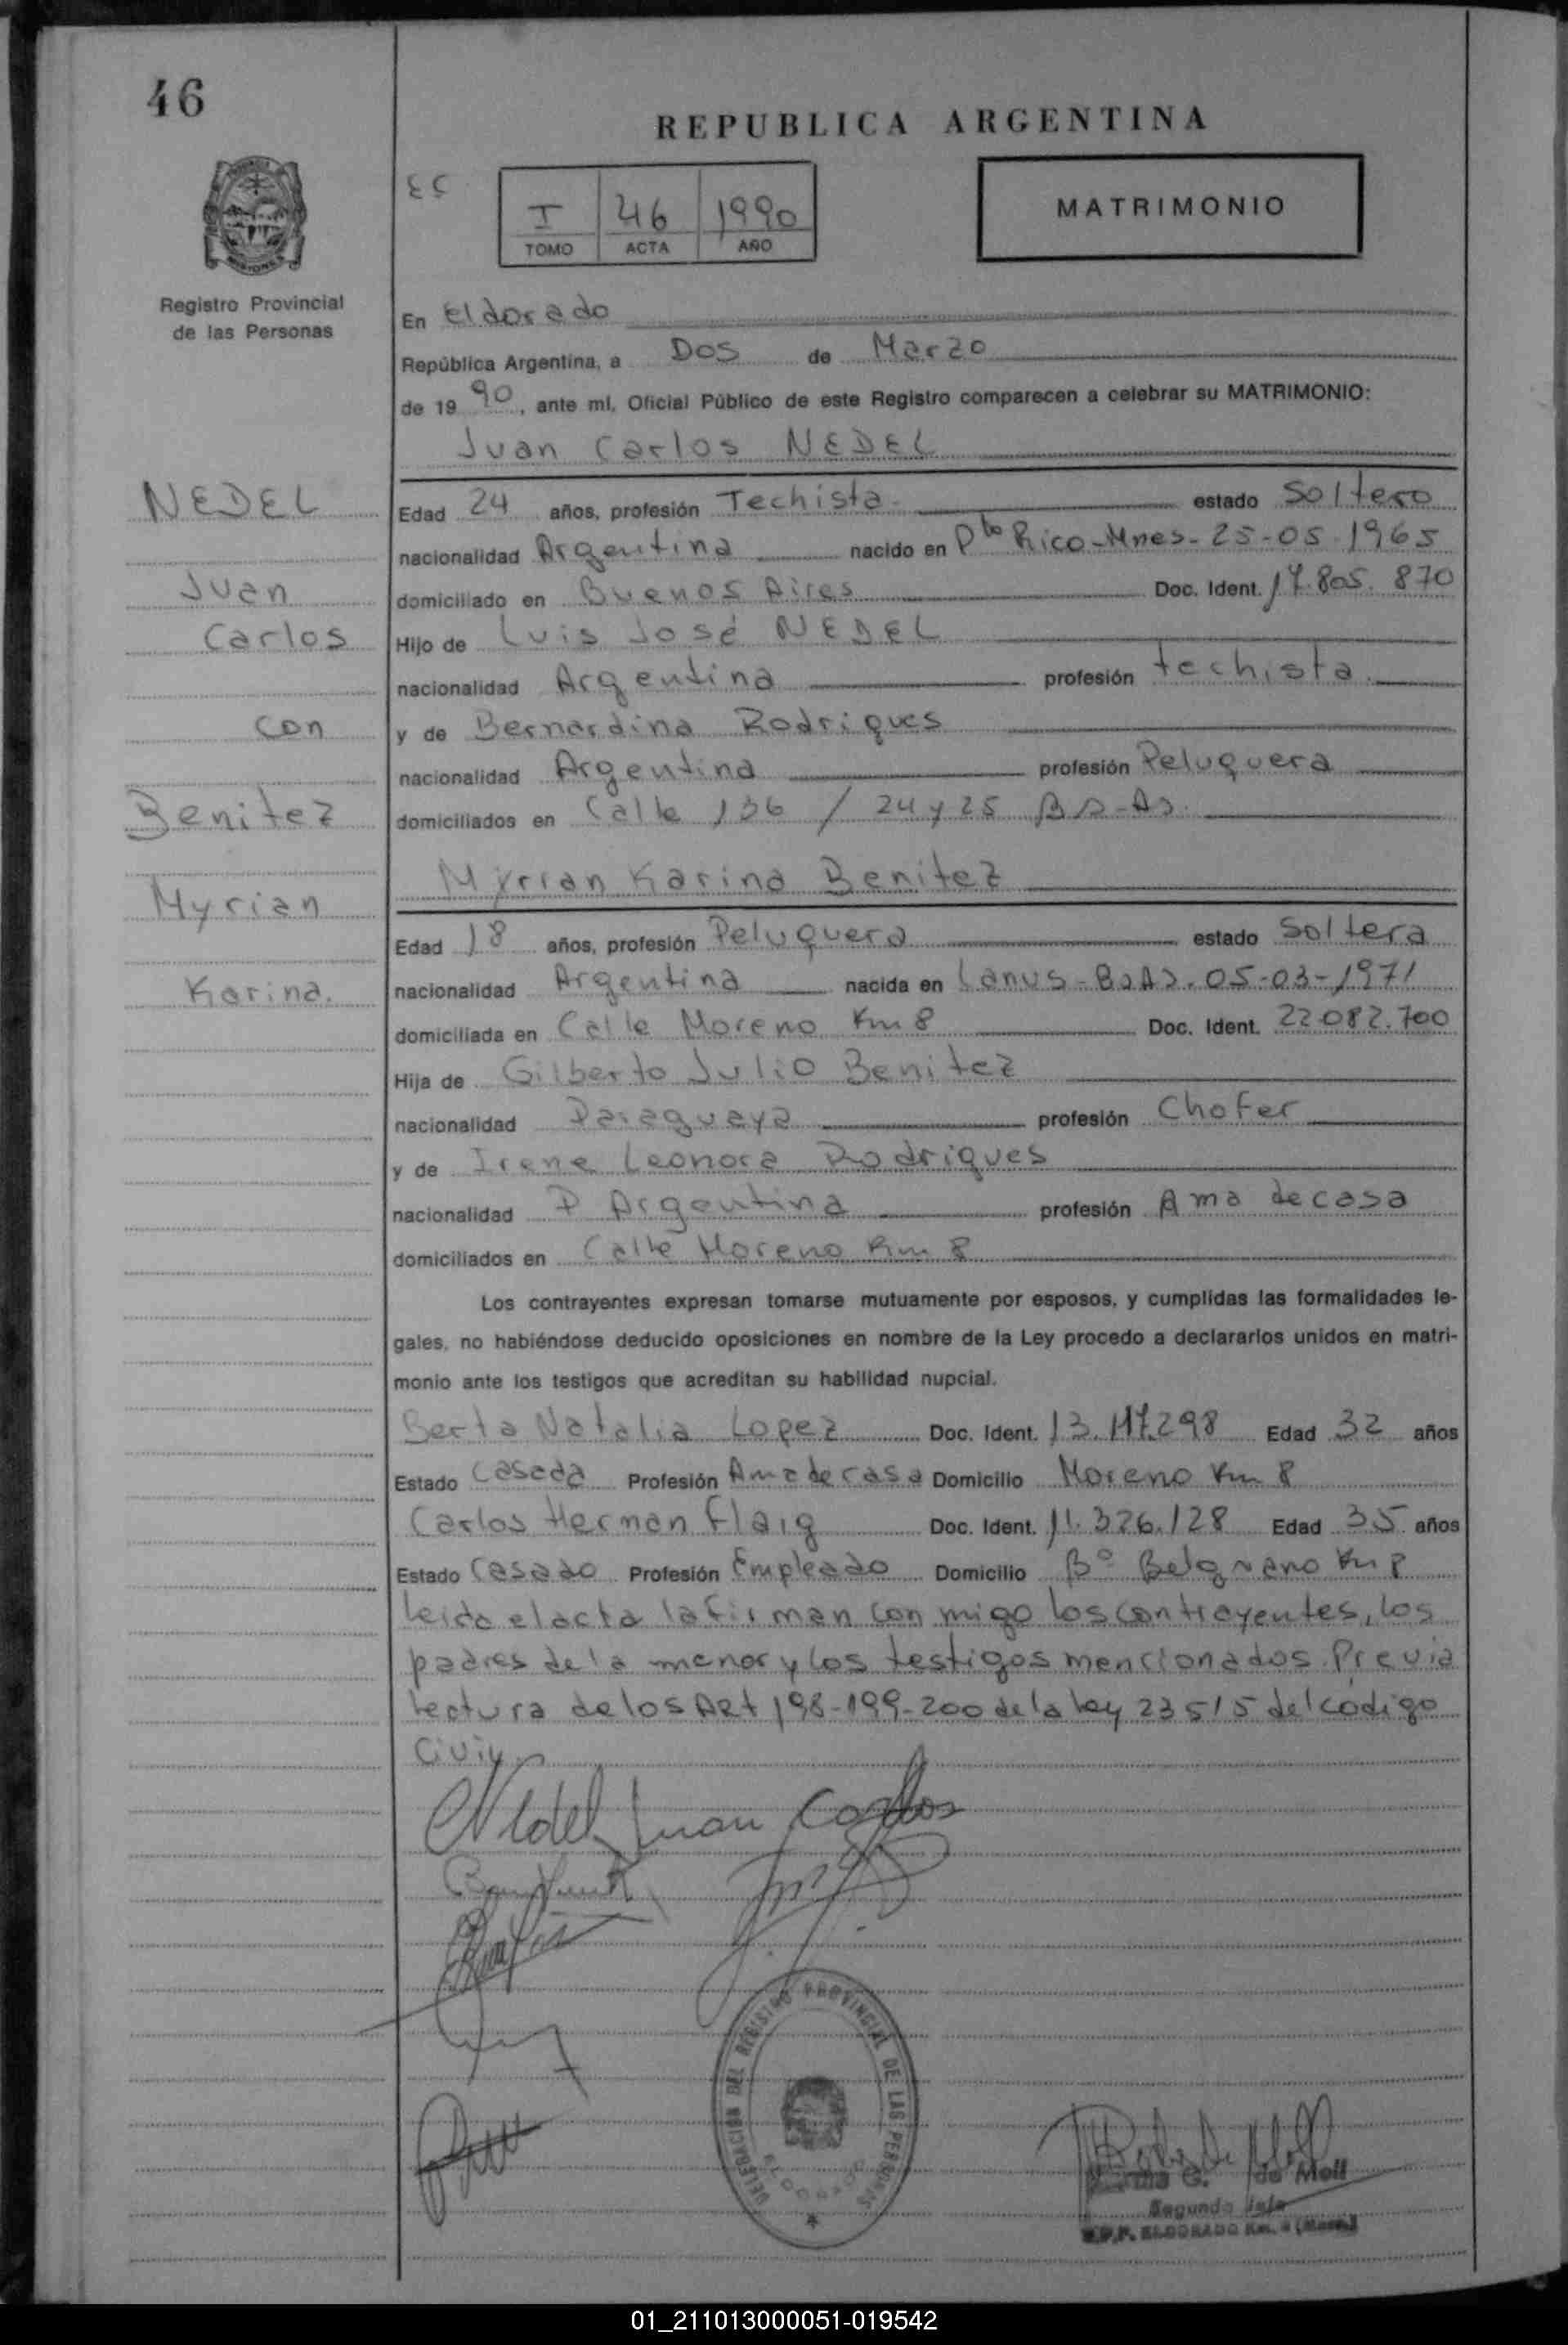 46
REPUBLICA ARGENTINA
I 46 1990
TOMO ACTA AÑO
MATRIMONIO
Registro Provincial
de las Personas
En Eldorado
República Argentina, a Dos de Marzo
de 19 90, ante mí, Oficial Público de este Registro comparecen a celebrar su MATRIMONIO:
Juan Carlos NEDEL
NEDEL
Juan
Carlos
con
Benitez
Myrian
Karina.
Edad 24 años, profesión Techista estado Soltero
nacionalidad Argentina nacido en Pto Rico-Mnes-25-05-1965
domiciliado en Buenos Aires Doc. Ident. 17.805.870
Hijo de Luis José NEDEL
nacionalidad Argentina profesión techista
y de Bernardina Rodrigues
nacionalidad Argentina profesión Peluquera
domiciliados en Calle 136 / 24 y 25 Bs-As.
Myrian Karina Benitez
Edad 18 años, profesión Peluquera estado Soltera
nacionalidad Argentina nacida en Lanus-BsAs. 05-03-1971
domiciliada en Calle Moreno Km 8 Doc. Ident. 22.082.700
Hija de Gilberto Julio Benitez
nacionalidad Paraguaya profesión Chofer
y de Irene Leonora Rodrigues
nacionalidad P Argentina profesión Ama de casa
domiciliados en Calle Moreno Km 8
Los contrayentes expresan tomarse mutuamente por esposos, y cumplidas las formalidades le-
gales, no habiéndose deducido oposiciones en nombre de la Ley procedo a declararlos unidos en matri-
monio ante los testigos que acreditan su habilidad nupcial.
Berta Natalia Lopez Doc. Ident. 13.117.298 Edad 32 años
Estado Casada Profesión Ama de casa Domicilio Moreno Km 8
Carlos Herman Flaig Doc. Ident. 11.326.128 Edad 35 años
Estado Casado Profesión Empleado Domicilio B° Belgrano Km 8
leido el acta la firman con migo los contrayentes, los
padres de la menor y los testigos mencionados. Previa
lectura de los Art 198-199-200 de la ley 23515 del código
Civil
Nedel Juan Carlos
DELEGACIÓN DEL REGISTRO PROVINCIAL DE LAS PERSONAS
ELDORADO
G. de Moll
Segundo Jefe
R.P.P. ELDORADO Km.
01_211013000051-019542